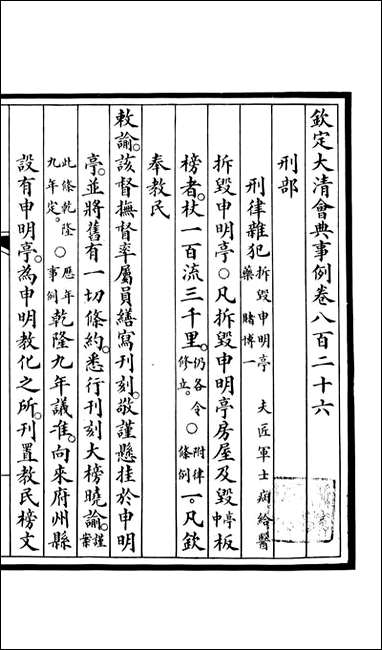 欽定大清會典事例卷八百二十六
刑部
刑律雜犯拆毀申明亭 夫匠軍士病給醫藥 賭博一
拆毀申明亭○凡拆毀申明亭房屋及毀亭中板
榜者。杖一百流三千里。仍各令修立。○附律條例一。凡欽
奉教民
敕諭。該督撫督率屬員繕寫刊刻。敬謹懸挂於申明
亭。並將舊有一切條約。悉行刊刻大榜曉諭。謹案
此條乾隆九年定。○歷年事例乾隆九年議準。向來府州縣
設有申明亭。為申明教化之所。刊置教民榜文